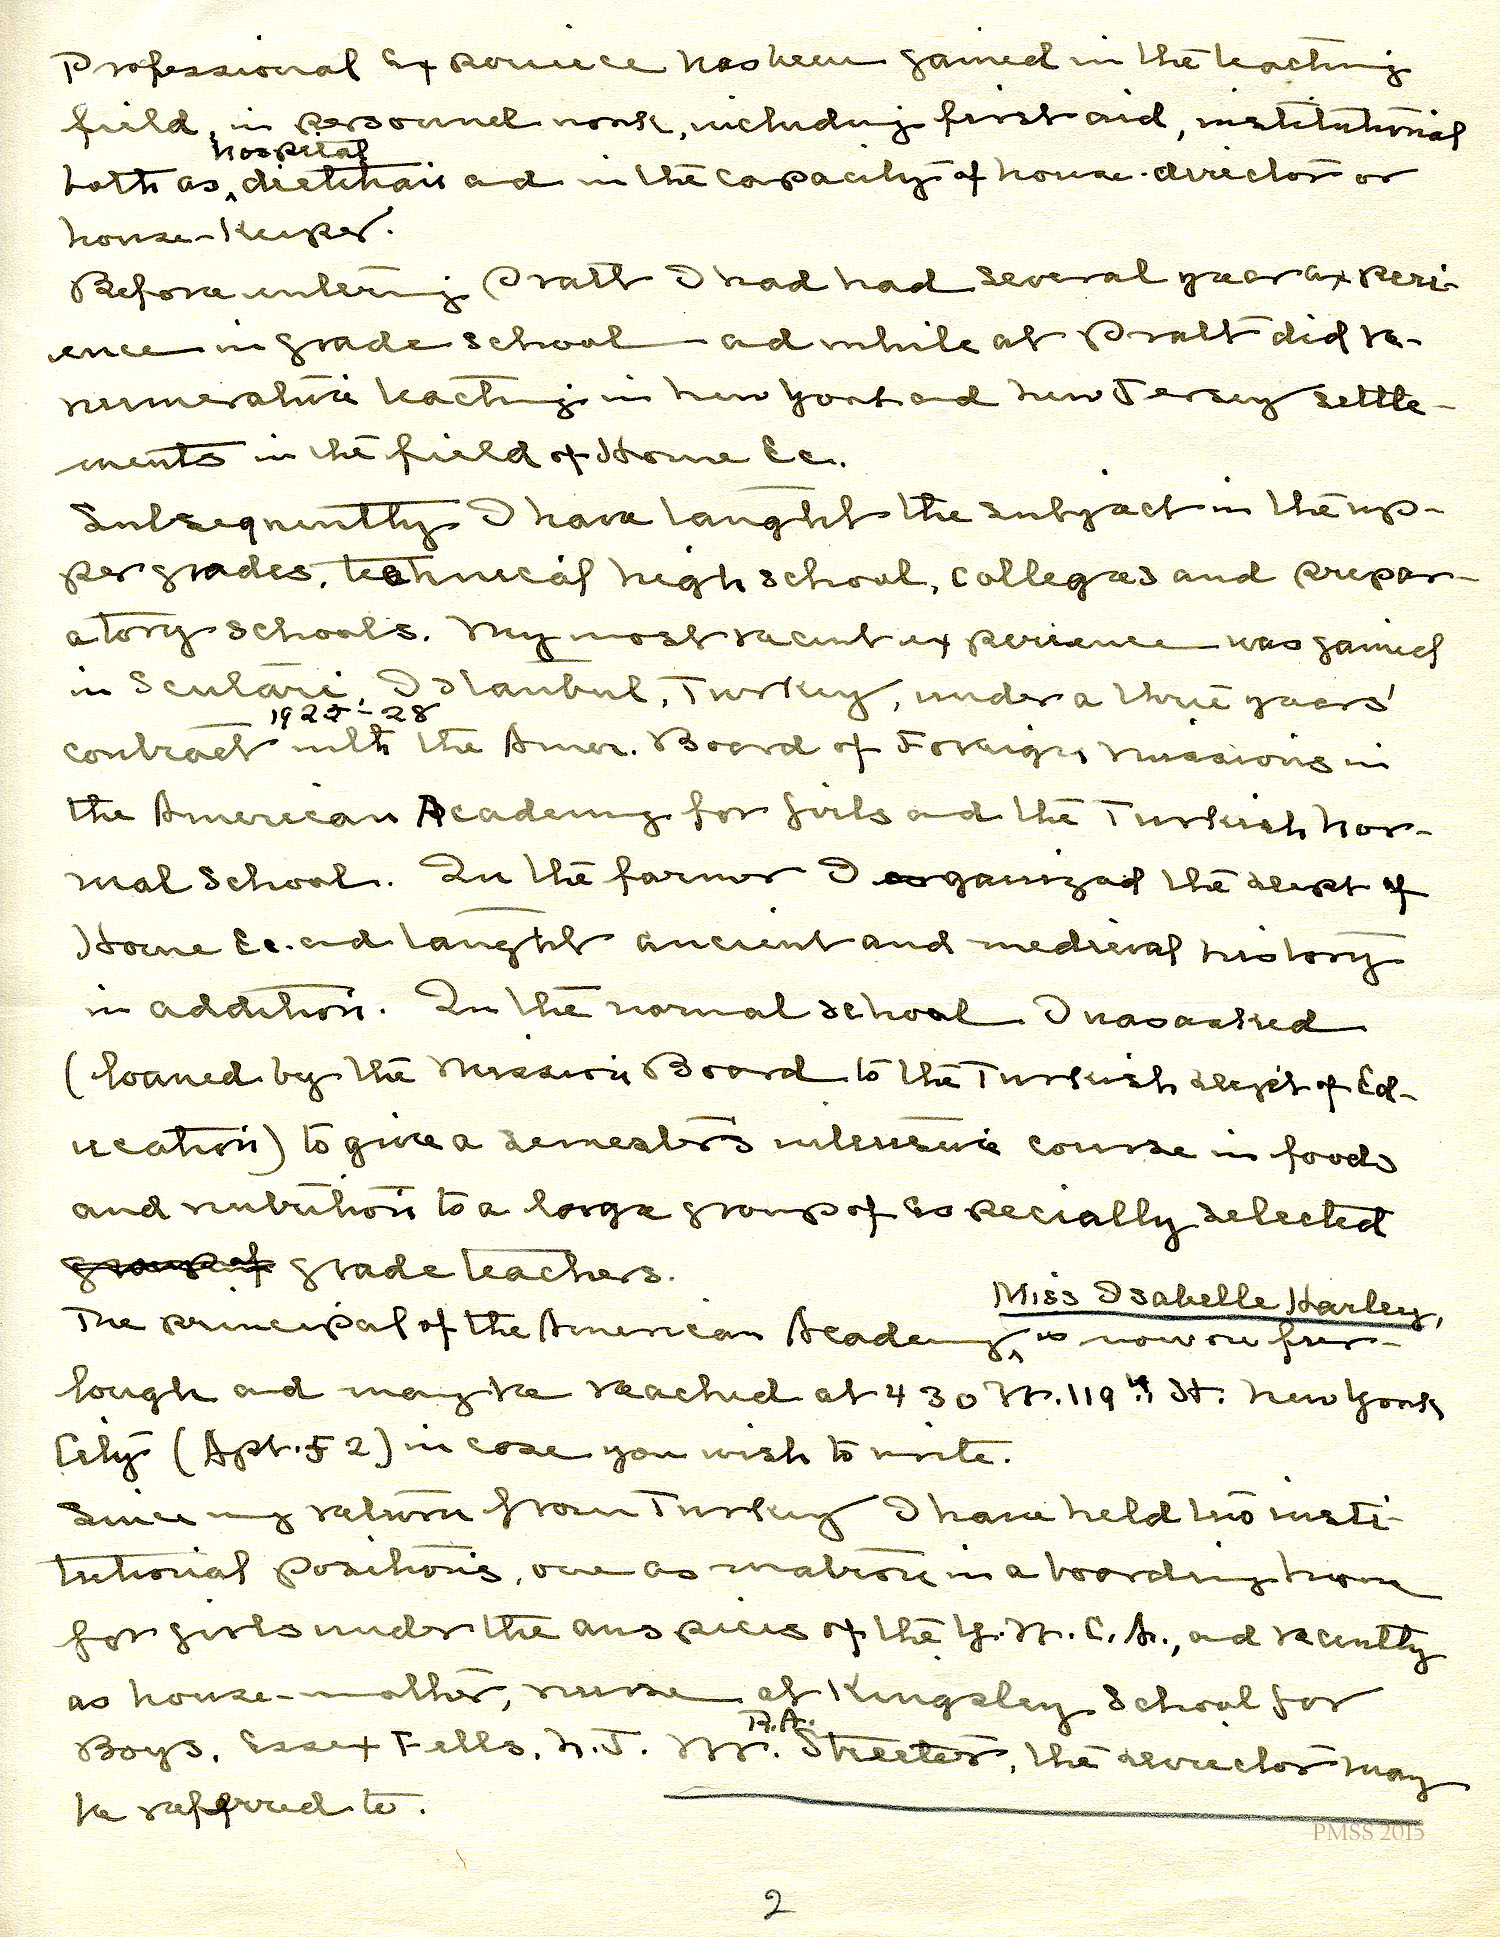 Professional experience has been gained in the teaching
field, in personnel work, including first aid, institutional
hospital
both as dietitian and in the capacity of house-director or
house-keeper.
Before entering Pratt I had had several year experi-
ence in grade school and while at Pratt did re-
numerative teaching in New York and New Jersey settle-
ments in the field of Home Ec.
Subsequently I have taught the subject in the up-
per grades, technical high school, colleges and prepar-
atory schools. My most recent experience was gained
in Scutari, Istanbul, Turkey, under a three years'
1925-28
contract with the Amer. Board of Foreign Missions in
the American Academy for Girls and the Turkish Nor-
mal School. In the former I organized the dept of
Home Ec. and taught ancient and medieval history
in addition. In the normal school I was asked
(loaned by the Mission Board to the Turkish dep't of Ed-
ucation) to give a semester's intensive course in foods
and nutrition to a large group of especially selected
group of grade teachers.
Miss Isabelle Harley,
The principal of the American Academy, is now on fur-
lough and may be reached at 430 W. 119th St. New York
City (Apt. F 2) in case you wish to write.
Since my return from Turkey I have held two insti-
tutional positions, one as matron in a boarding home
for girls under the auspices of the Y.W.C.A., and recently
as house-mother, nurse at Kingsley School for
R.A.
Boys, Essex Fells, N.J. Mr. Streeter, the director may
be referred to.
PMSS 2015
2